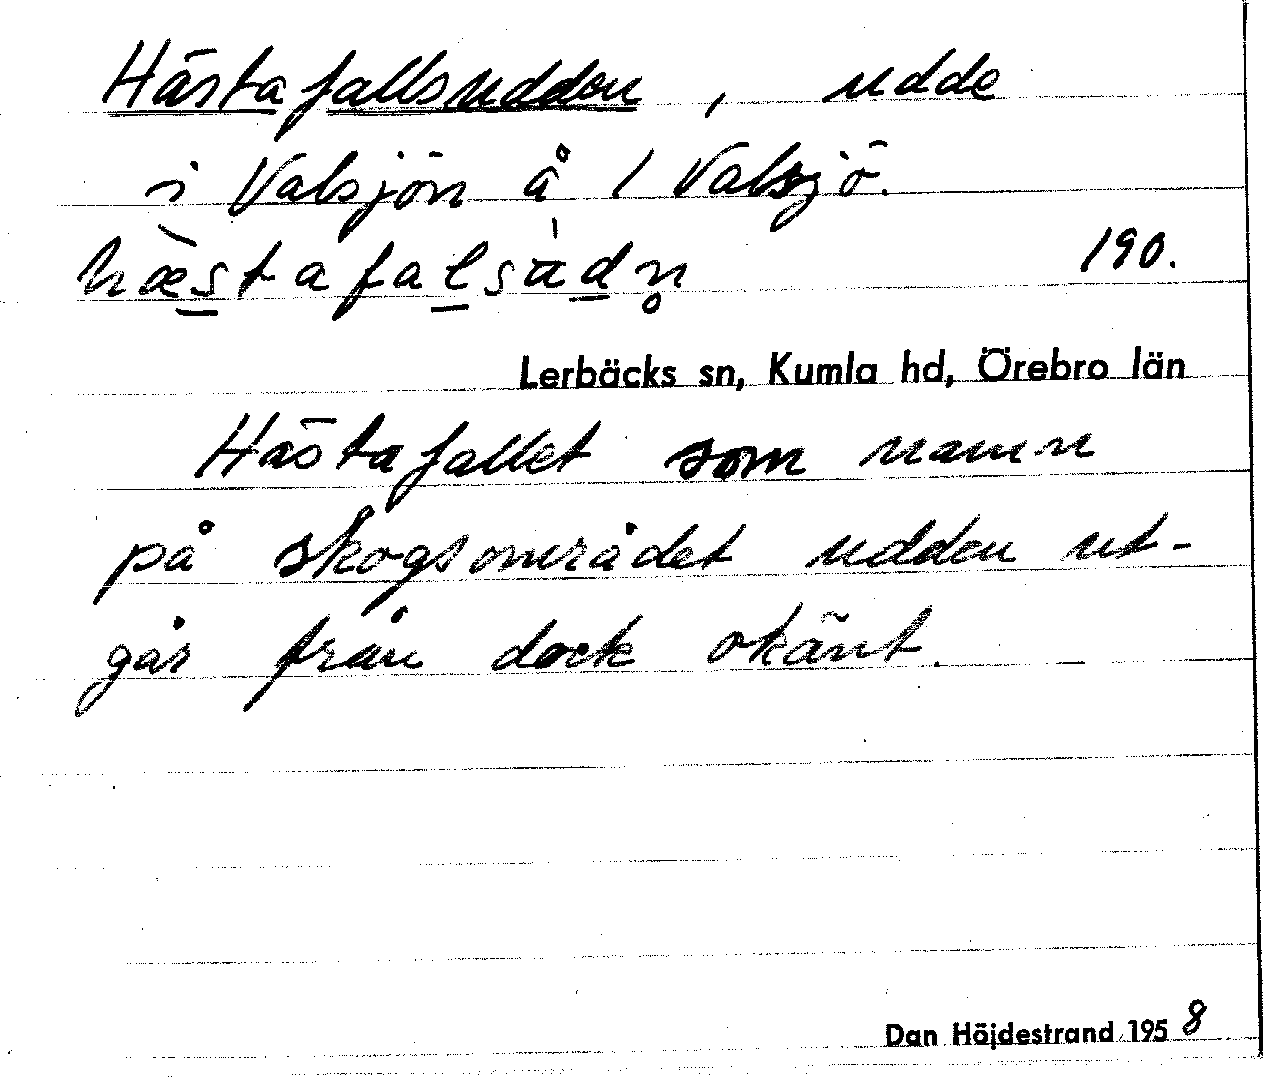 Hästafallsudden, udde
i Valsjön å 1 Valsjö.
hæ̀stafalsu̍dn̥
190.
Lerbäcks sn, Kumla hd, Örebro län
Hästafallet som namn
på skogsområdet udden ut-
går från dock okänt.
Dan Höjdestrand 1958